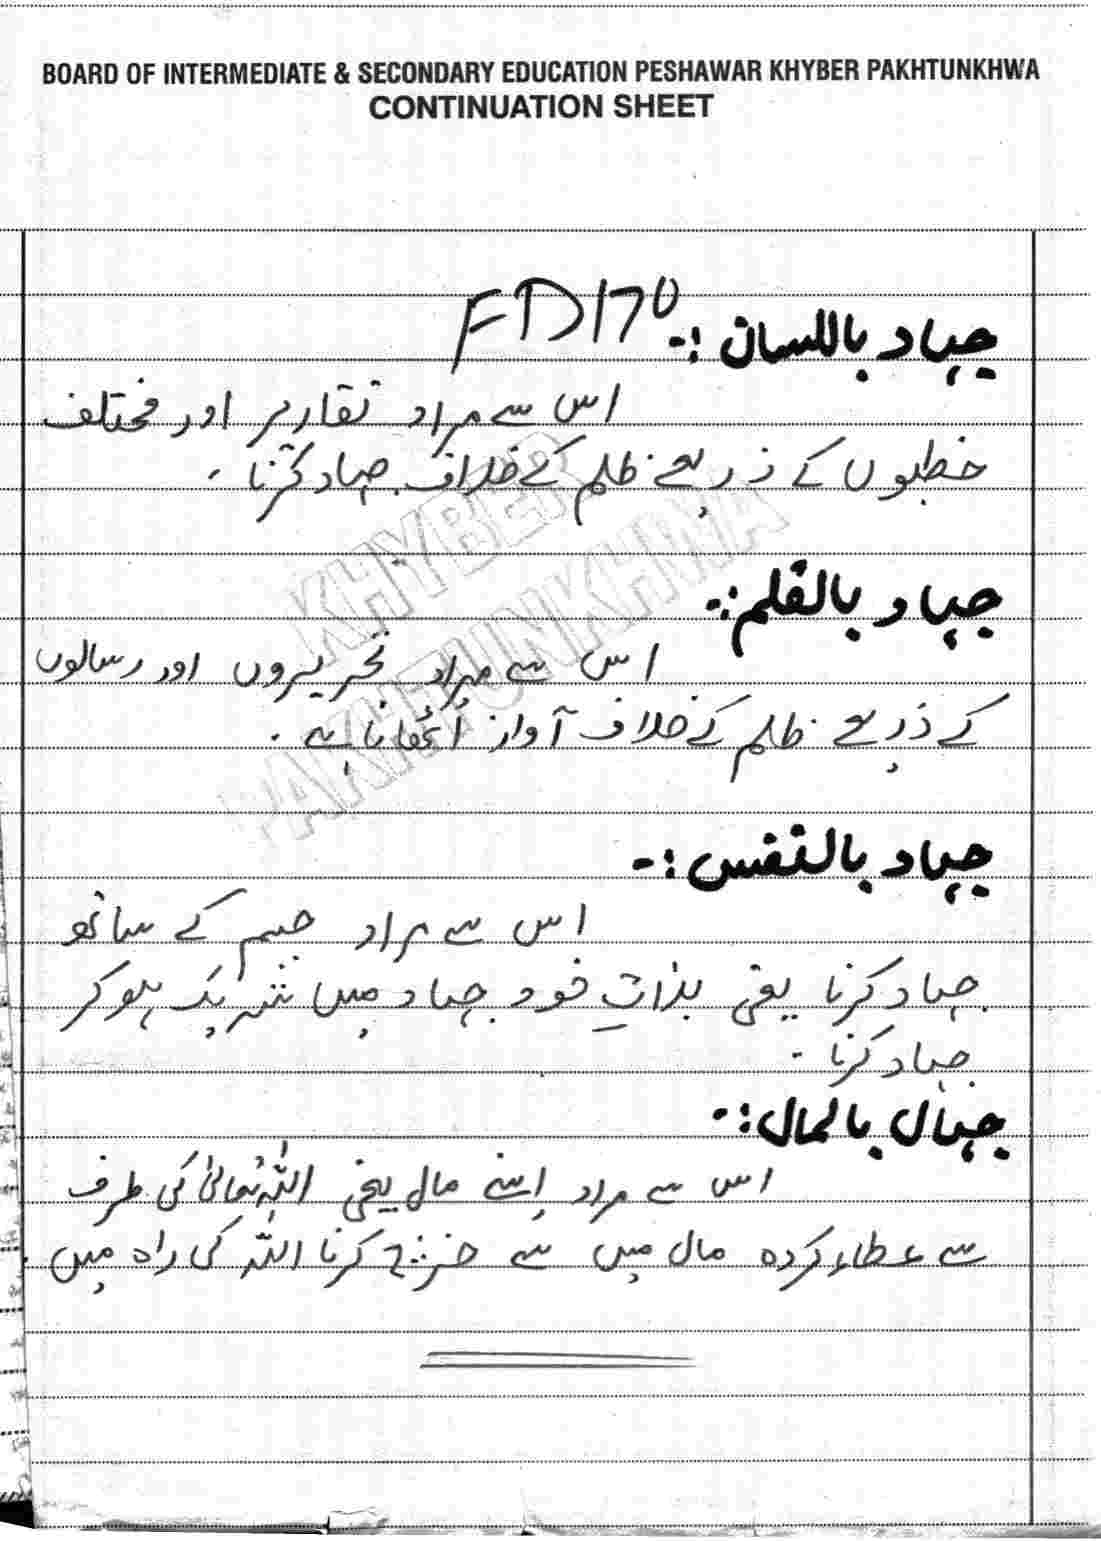 BOARD OF INTERMEDIATE & SECONDARY EDUCATION PESHAWAR KHYBER PAKHTUNKHWA
CONTINUATION SHEET
FD170
جہاد باللسان :-
اس سے مراد تقاریر اور مختلف
خطبوں کے ذریعے ظلم کے خلاف جہاد کرنا ۔
KHYBER
PAKHTUNKHWA
جہاد بالقلم :-
اس سے مراد تحریروں اور رسالوں
کے ذریعے ظلم کے خلاف آواز اُٹھانا ہے ۔
جہاد بالنفس :-
اس سے مراد جسم کے ساتھ
جہاد کرنا یعنی بذاتِ خود جہاد میں شریک ہو کر
جہاد کرنا ۔
جہاں بالمال :-
اس سے مراد اپنے مال یعنی اللہ تعالیٰ کی طرف
سے عطاء کردہ مال میں سے خرچ کرنا اللہ کی راہ میں